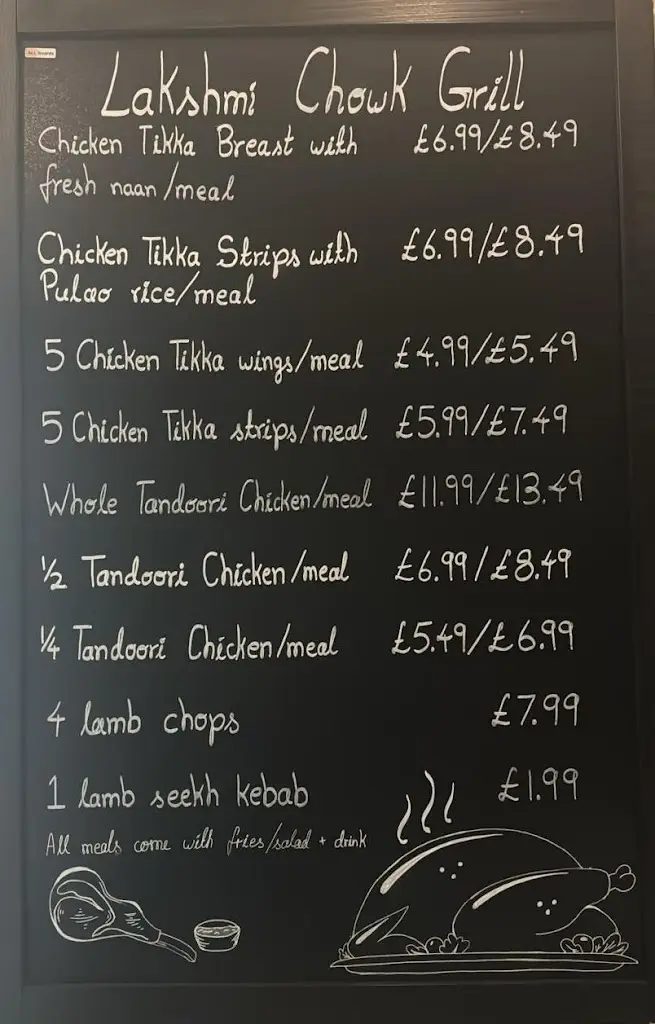 Lakshmi Chowk Grill
Chicken Tikka Breast with £6.99/£8.49
fresh naan/meal
Chicken Tikka Strips with £6.99/£8.49
Pulao rice/meal
5 Chicken Tikka wings/meal £4.99/£5.49
5 Chicken Tikka strips/meal £5.99/£7.49
Whole Tandoori Chicken/meal £11.99/£13.49
½ Tandoori Chicken/meal £6.99/£8.49
¼ Tandoori Chicken/meal £5.49/£6.99
4 lamb chops £7.99
1 lamb seekh kebab £1.99
All meals come with fries/salad + drink